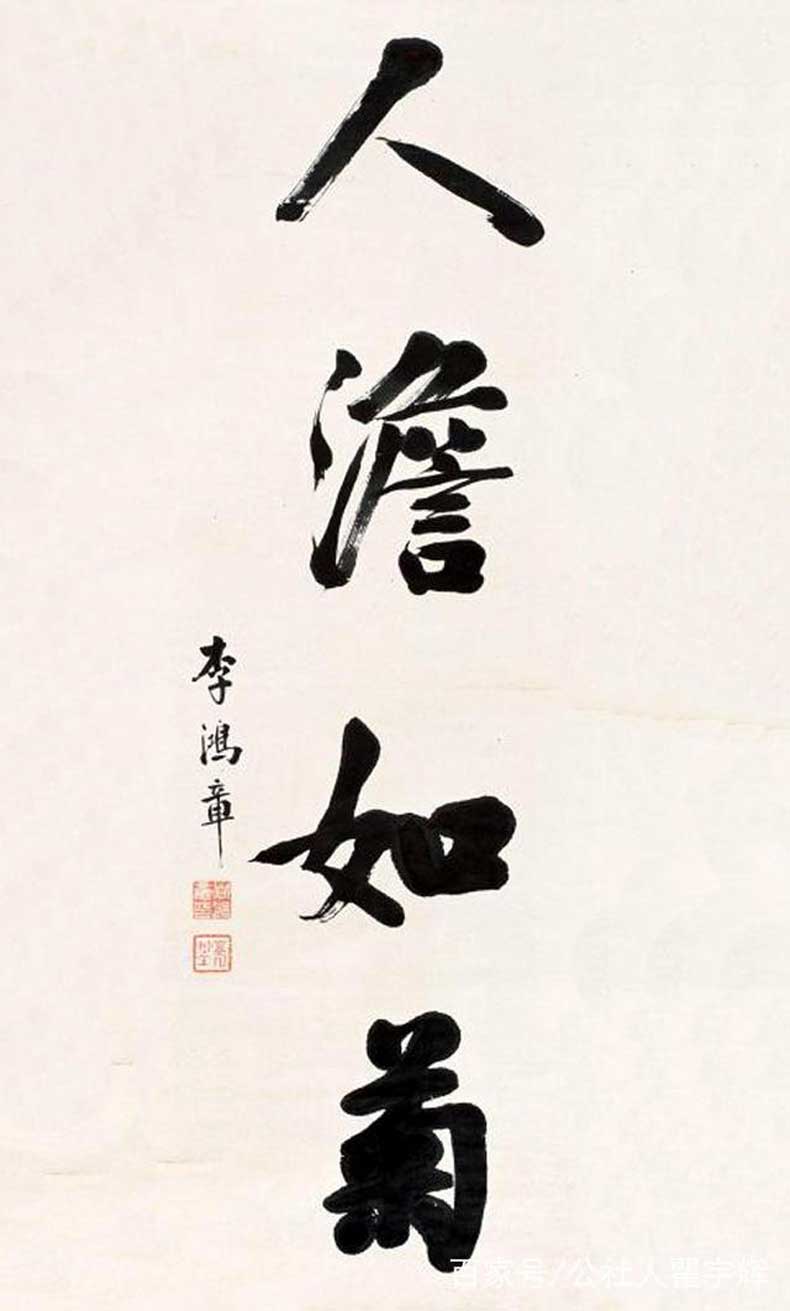 人澹如菊
李鴻章
百家号/公社人瞿宇辉